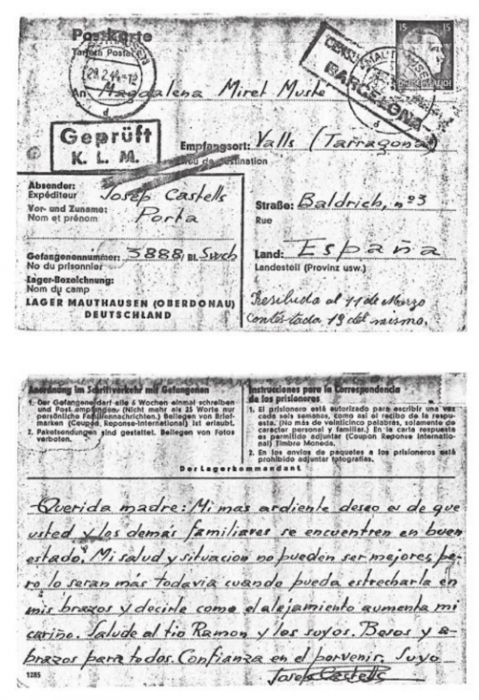 Postkarte
Tarjeta Postal
29.2.44-12
CENSURA
BARCELONA
15 15
An Magdalena Miret Musté
Geprüft
K. L. M.
Empfangsort: Valls (Tarragona)
Lieu de destination
Absender: Josep Castells
Expéditeur
Vor- und Zuname: Porta
Nom et prénom
Straße: Baldrich, nº 3
Rue
Gefangenennummer: 3888, Bl.
No du prisonnier
Land: España
Landesteil (Provinz usw.)
Lager-Bezeichnung:
Nom du camp
LAGER MAUTHAUSEN (OBERDONAU)
DEUTSCHLAND
Resibida al 11 de Marzo
Contestada 19 del mismo.
Anordnung im Schriftverkehr mit Gefangenen
1. Der Gefangene darf alle 6 Wochen einmal schreiben
und Post empfangen (Nicht mehr als 25 Worte nur
persönliche Familiennachrichten.) Beilegen von Brief-
marken (Coupon, Reponse-International) ist erlaubt.
2. Paketsendungen sind gestattet. Beilegen von Fotos
verboten.
Instrucciones para la Correspondencia
de los prisioneros
1. El prisionero está autorizado para escribir una vez
cada seis semanas, como asi el recibo de la respu-
esta. (No mas de veinticinco palabras, solamente de
caracter personal y familiar.) En la carta respuesta
es permitido adjuntar (Coupon Reponse Internatio-
nal) Timbre Moneda.
2. En los envios de paquetes a los prisioneros está
prohibido adjuntar fotografias.
Der Lagerkommandant
Querida madre: Mi mas ardiente deseo es de que
usted y los demás familiares se encuentren en buen
estado. Mi salud y situacion no pueden ser mejores, pe-
ro lo seran más todavia cuando pueda estrecharla en
mis brazos y decirle como el alejamiento aumenta mi
cariño. Salude al tio Ramon y los suyos. Besos y a-
brazos para todos. Confianza en el porvenir. Suyo
Josep Castells
1285